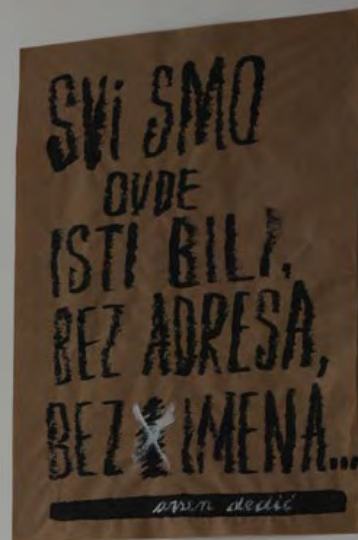 SVi SMO
OVDE
ISTI BILI,
BEZ ADRESA,
BEZ IMENA...
arsen dedić